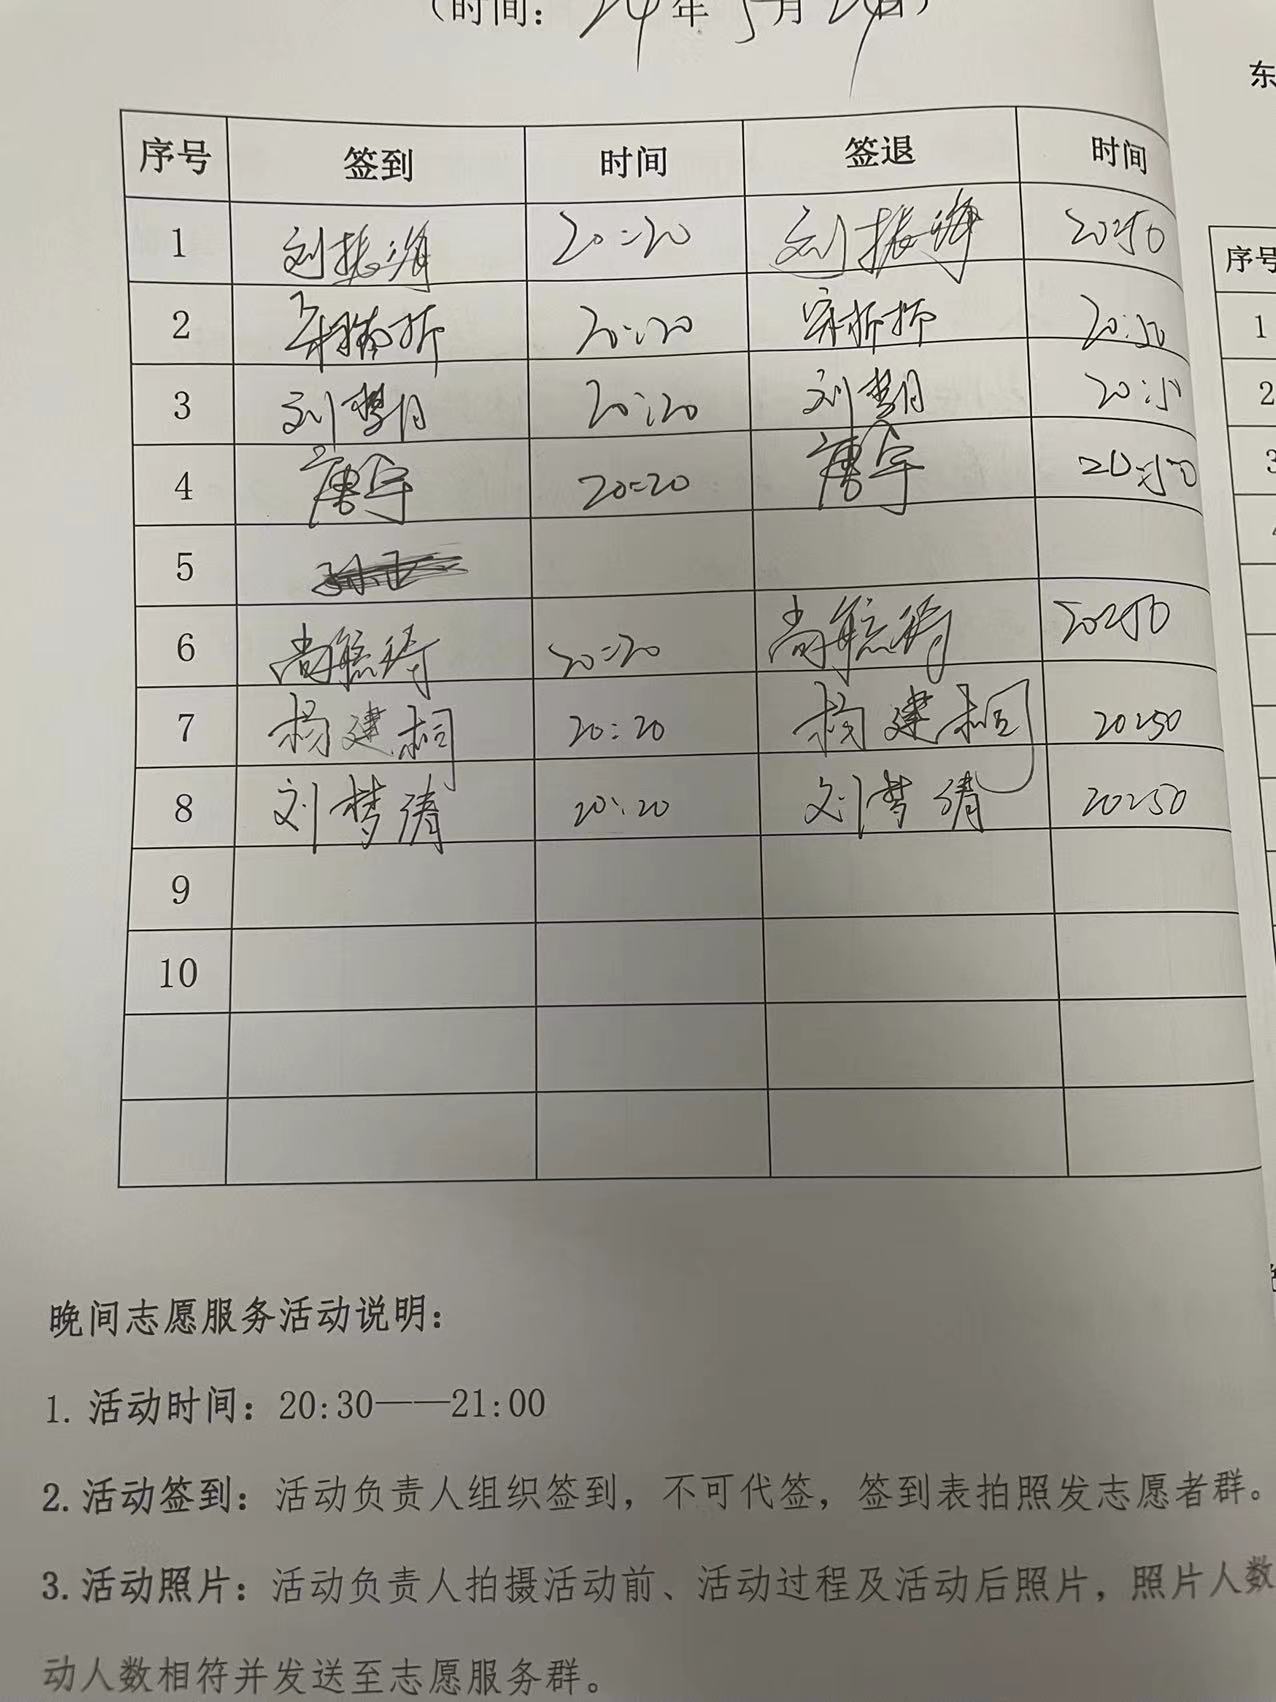 （时间：24年5月24日）
序号 签到 时间 签退 时间
1 刘振海 20:20 刘振海 20:50
2 20:20 20:50
3 刘梦月 20:20 刘梦月 20:5
4 唐宇 20:20 唐宇 20:50
5
6 尚 20:20 尚 20:50
7 杨建桐 20:20 杨建桐 20:50
8 刘梦倩 20:20 刘梦倩 20:50
9
10
晚间志愿服务活动说明：
1. 活动时间：20:30——21:00
2. 活动签到：活动负责人组织签到，不可代签，签到表拍照发志愿者群。
3. 活动照片：活动负责人拍摄活动前、活动过程及活动后照片，照片人数
动人数相符并发送至志愿服务群。
东
序号
1
2
3